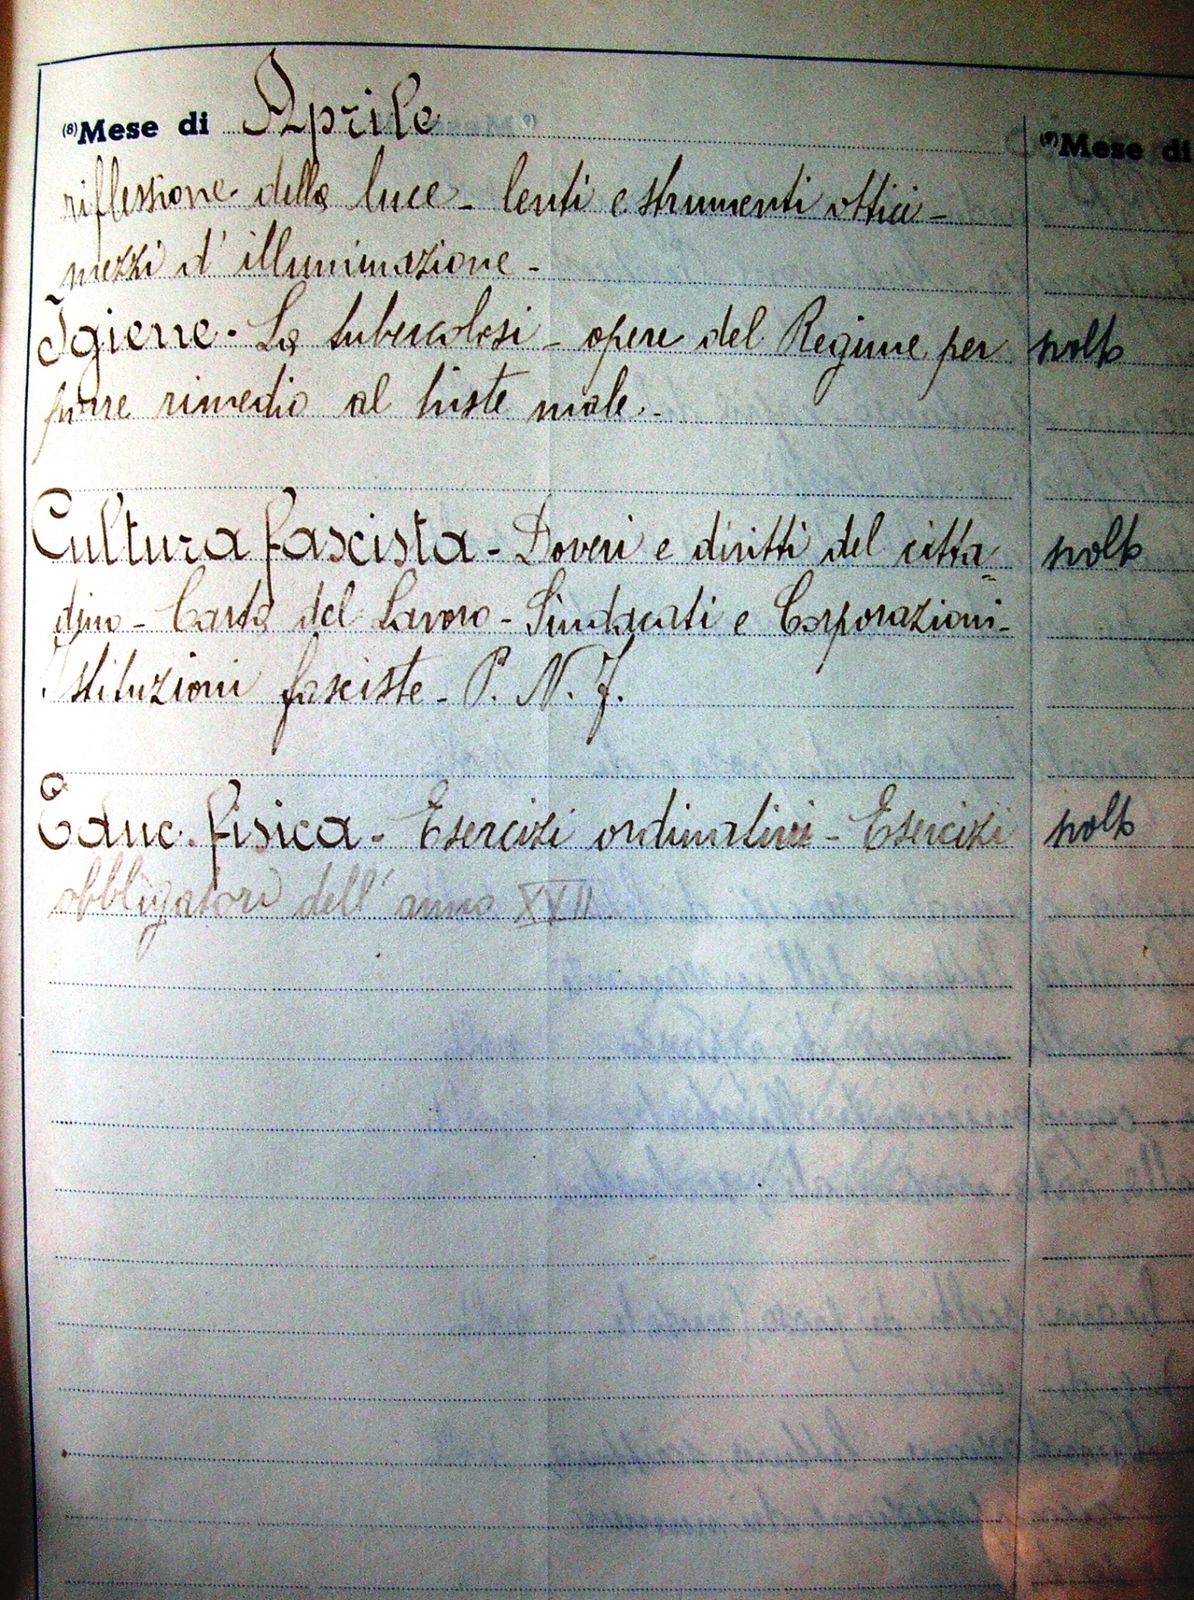 (8) Mese di Aprile
(9) Mese di
riflessione della luce - lenti e strumenti ottici -
mezzi d'illuminazione -
Igiene - La tubercolosi - opere del Regime per svolto
porre rimedio al triste male. -
Cultura fascista - Doveri e diritti del citta= svolto
dino - Carta del Lavoro - Sindacati e Corporazioni -
Istituzioni fasciste - P. N. F.
Educ. fisica - Esercizi ordinativi - Esercizi svolto
obbligatori dell'anno XVII.